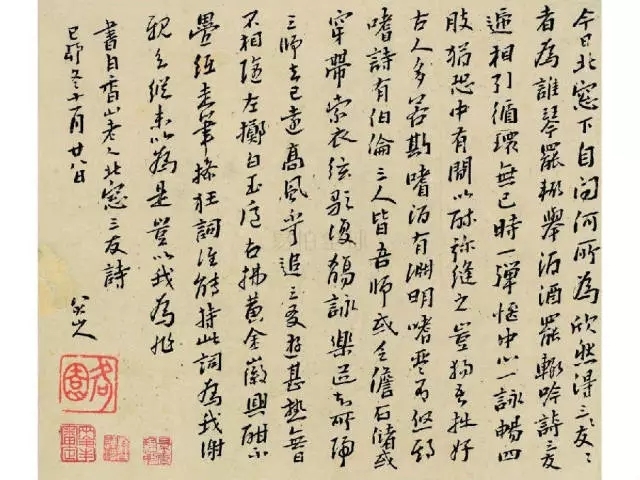 今日北窓下自问何所為欣然得三友〻
者為誰琴罷輙舉酒酒罷輙吟詩三友
遞相引循環無已時一彈愜中心一詠暢四
肢猶恐中有間以弥縫之豈獨吾拙好
古人多若斯嗜酒有淵明嗜琴有啓期
嗜詩有伯倫三人皆吾師或乏儋石儲或
穿帶索衣弦歌復觴詠樂道知所歸
三師去已遠高風不可追三友遊甚熟無日
不相隨左擲白玉卮右拂黄金徽興酣不
疊紙走筆操狂詞誰能持此詞為我謝
親知縱未以為是豈以我為非
書白香山老人北窓三友詩
己卯冬十一月廿八日
八大山人